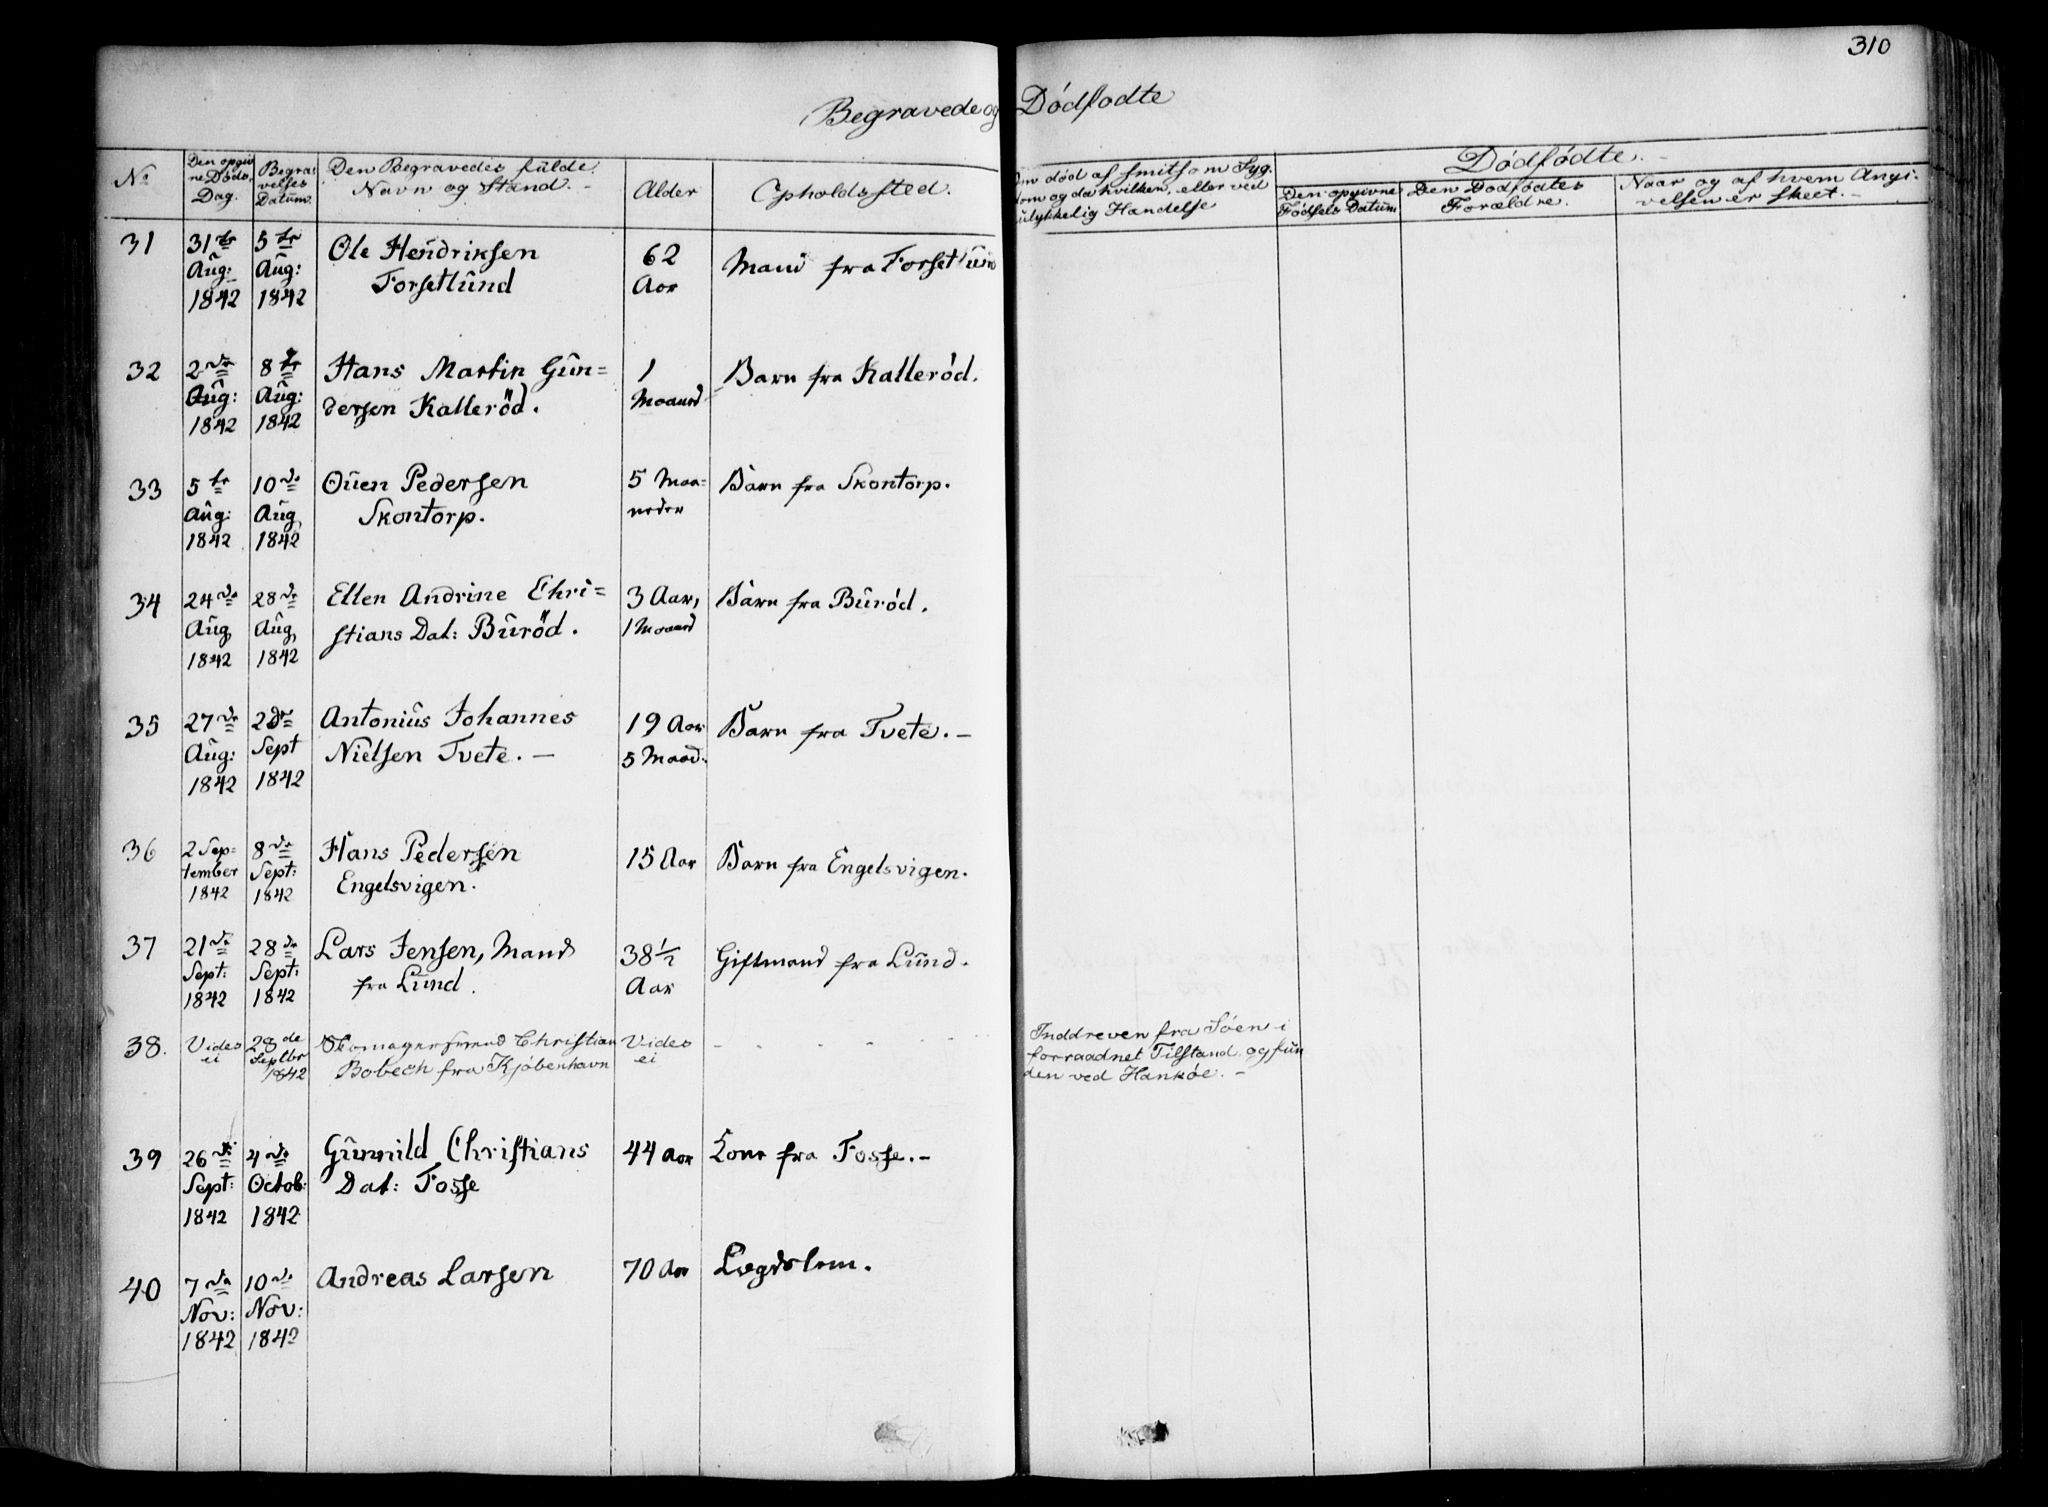 310
Begravede og Dödfödte
No
Den opgiv
ne Döds,
Dag.
Begra-
velses
Datum.
Den Begravedes fulde
Navn og Stand. -
Alder
Opholdssted.
Om död af smitsom Syg.
dom og da hvilken, eller ved
ulykkelig Handelse
Dödfödte. -
Den opgivne
Födsels Datum
Den Dödfödtes
Forældre.
Naar og af hvem Angi-
velsen er skeet. -
31
31te
Aug:
1842
5te
Aug:
1842
Ole Hendriksen
Forsetlund
62
Aar
Mand fra Forsetlund
32
2de
Aug:
1842
8de
Aug:
1842
Hans Martin Gun=
dersen Kalleröd.
1
Maaned
Barn fra Kalleröd.
33
5te
Aug:
1842
10de
Aug
1842
Ouen Pedersen
Skontorp.
5 Maa-
neder
Barn fra Skontorp.
34
24de
Aug
1842
28de
Aug
1842
Ellen Andrine Chri=
stians Dat: Buröd.
3 Aar,
1 Maaned
Barn fra Buröd.
35
27de
Aug:
1842
2den
Sept
1842
Antonius Johannes
Nielsen Tvete. -
19 Aar
5 Maad.
Barn fra Tvete. -
36
2 Sep-
tember
1842
8de
Sept:
1842
Hans Pedersen
Engelsvigen.
15 Aar
Barn fra Engelsvigen.
37
21de
Sept:
1842
28de
Sept:
1842
Lars Jensen, Mand
fra Lund.
38 1/2
Aar
Giftmand fra Lund.
38.
Vides
ei
28de
Septbr
1842
Skomagersvend Christian
Bobech fra Kjöbenhavn
Vides
ei
- - - - - -
Inddreven fra Söen i
forraadnet Tilstand, og fun
den ved Hanköe. -
39
26de
Sept:
1842
4de
Octob:
1842
Gunnild Christians
Dat: Fosse
44 Aar
Kone fra Fosse. -
40
7de
Nov:
1842
10de
Nov:
1842
Andreas Larsen
70 Aar
Lægdslem.